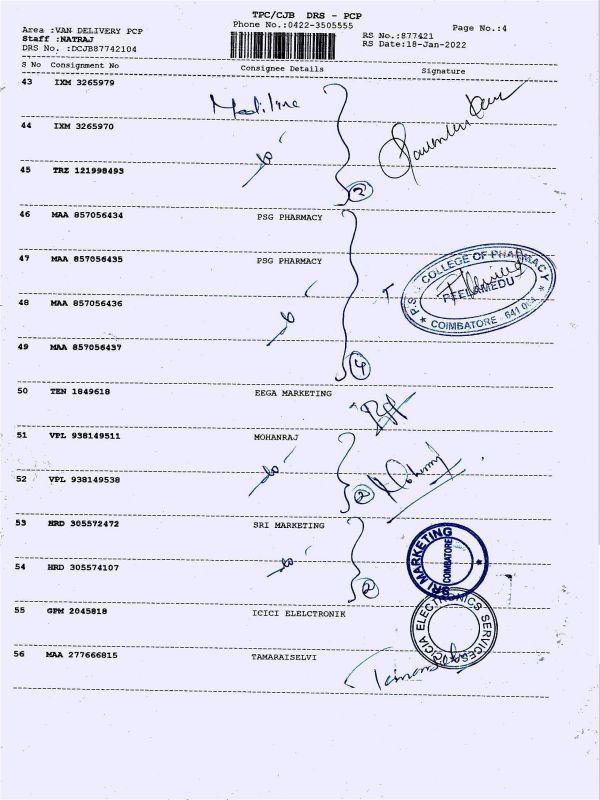 TPC/CJB DRS - PCP
Area :VAN DELIVERY PCP Phone No.:0422-3505555 Page No.:4
Staff :NATRAJ RS No.:877421
DRS No. :DCJB87742104 RS Date:18-Jan-2022
S No Consignment No Consignee Details Signature
43 IXM 3265979
44 IXM 3265970
45 TRZ 121998493
2
46 MAA 857056434 PSG PHARMACY
47 MAA 857056435 PSG PHARMACY
COLLEGE OF PHARMACY
PEELAMEDU
COIMBATORE
48 MAA 857056436
do
49 MAA 857056437
4
50 TEN 1849618 EEGA MARKETING
51 VPL 938149511 MOHANRAJ
do
52 VPL 938149538
2
53 HRD 305572472 SRI MARKETING
SRI MARKETING
COIMBATORE
do
54 HRD 305574107
2
55 GPM 2045818 ICICI ELELCTRONIK
ICICIA ELECTRONICS SERVICES
56 MAA 277666815 TAMARAISELVI